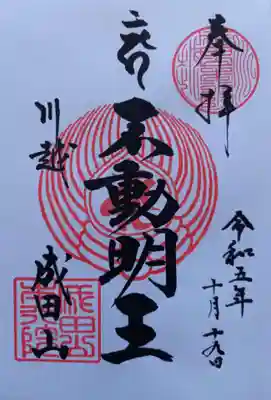 奉拝
不動明王
川越
成田山
令和五年
十月十九日